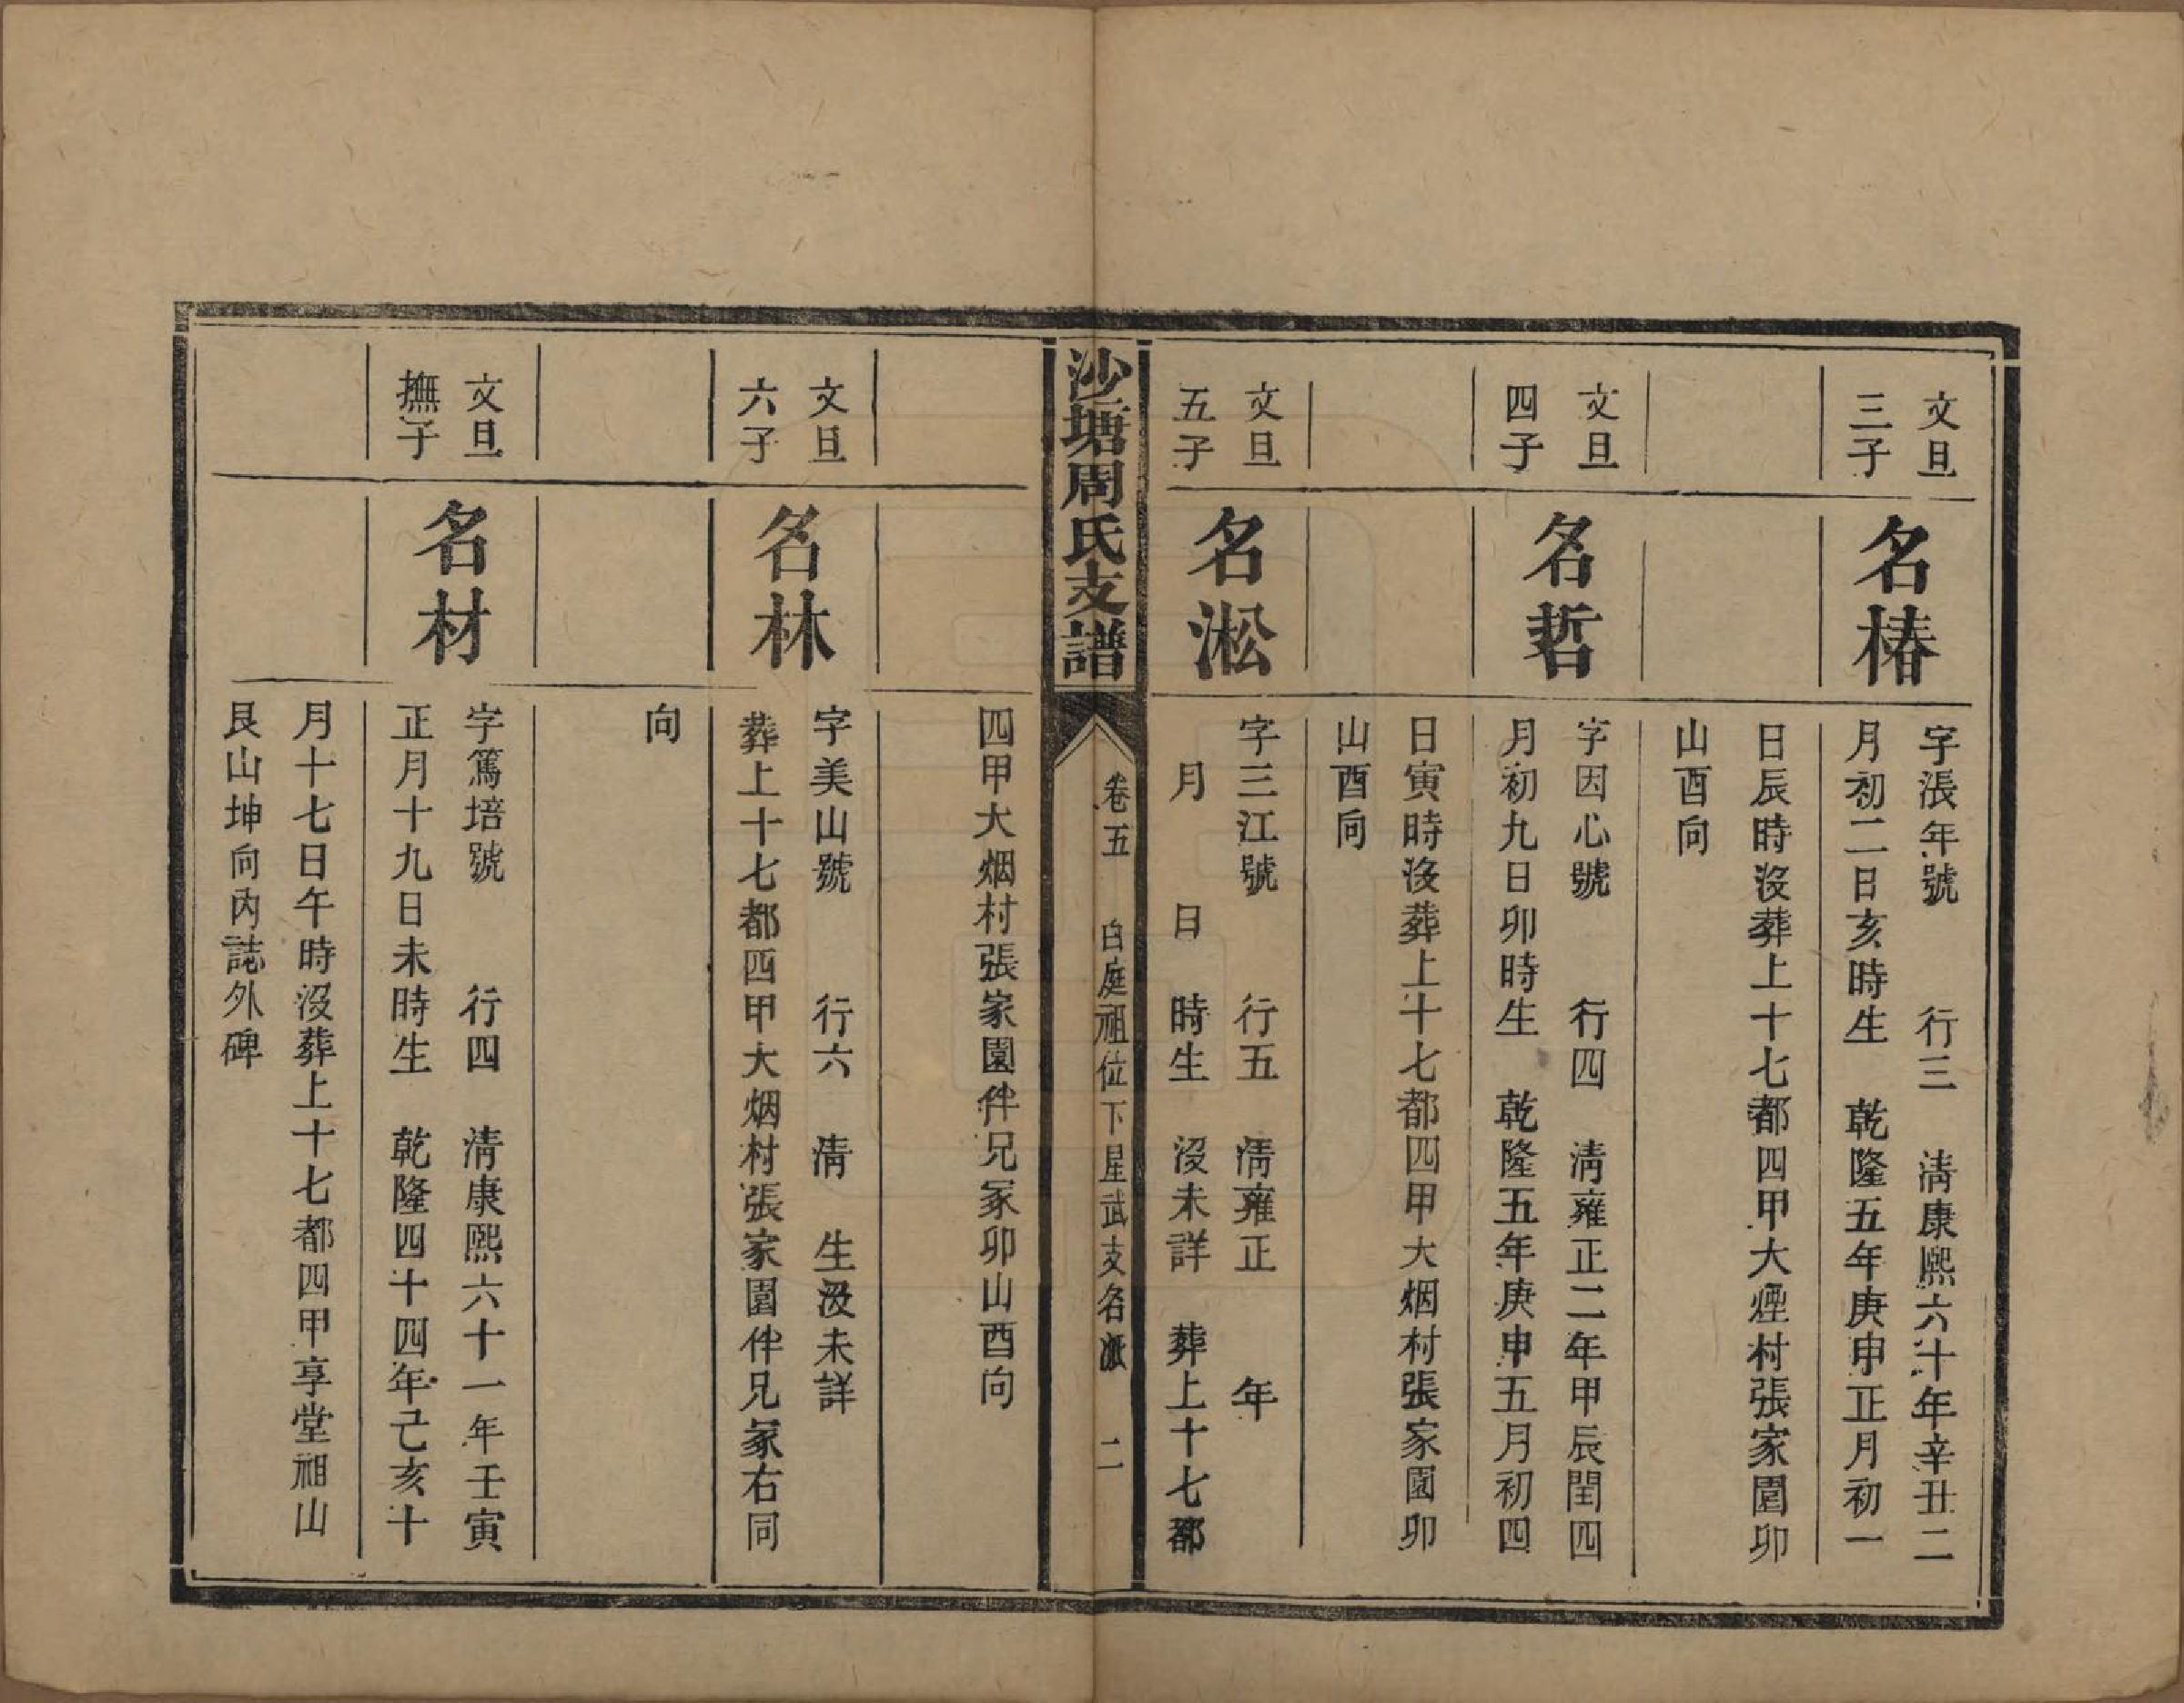 文旦
三子
名椿
字漲年號　行三　淸康熙六十年辛丑二
月初二日亥時生　乾隆五年庚申正月初一
日辰時沒葬上十七都四甲大煙村張家園卯
山酉向
文旦
四子
名哲
字因心號　行四　淸雍正二年甲辰閏四
月初九日卯時生　乾隆五年庚申五月初四
日寅時沒葬上十七都四甲大烟村張家園卯
山酉向
文旦
五子
名淞
字三江號　行五　淸雍正　年
月　日　時生　沒未詳　葬上十七都
沙塘周氏支譜
卷五　白庭祖位下星武支名派　二
四甲大烟村張家園伴兄冢卯山酉向
文旦
六子
名林
字美山號　行六　淸　生沒未詳
葬上十七都四甲大烟村張家園伴兄冢右同
向
文旦
撫子
名材
字篤培號　行四　淸康熙六十一年壬寅
正月十九日未時生　乾隆四十四年己亥十
月十七日午時沒葬上十七都四甲享堂祖山
艮山坤向內誌外碑